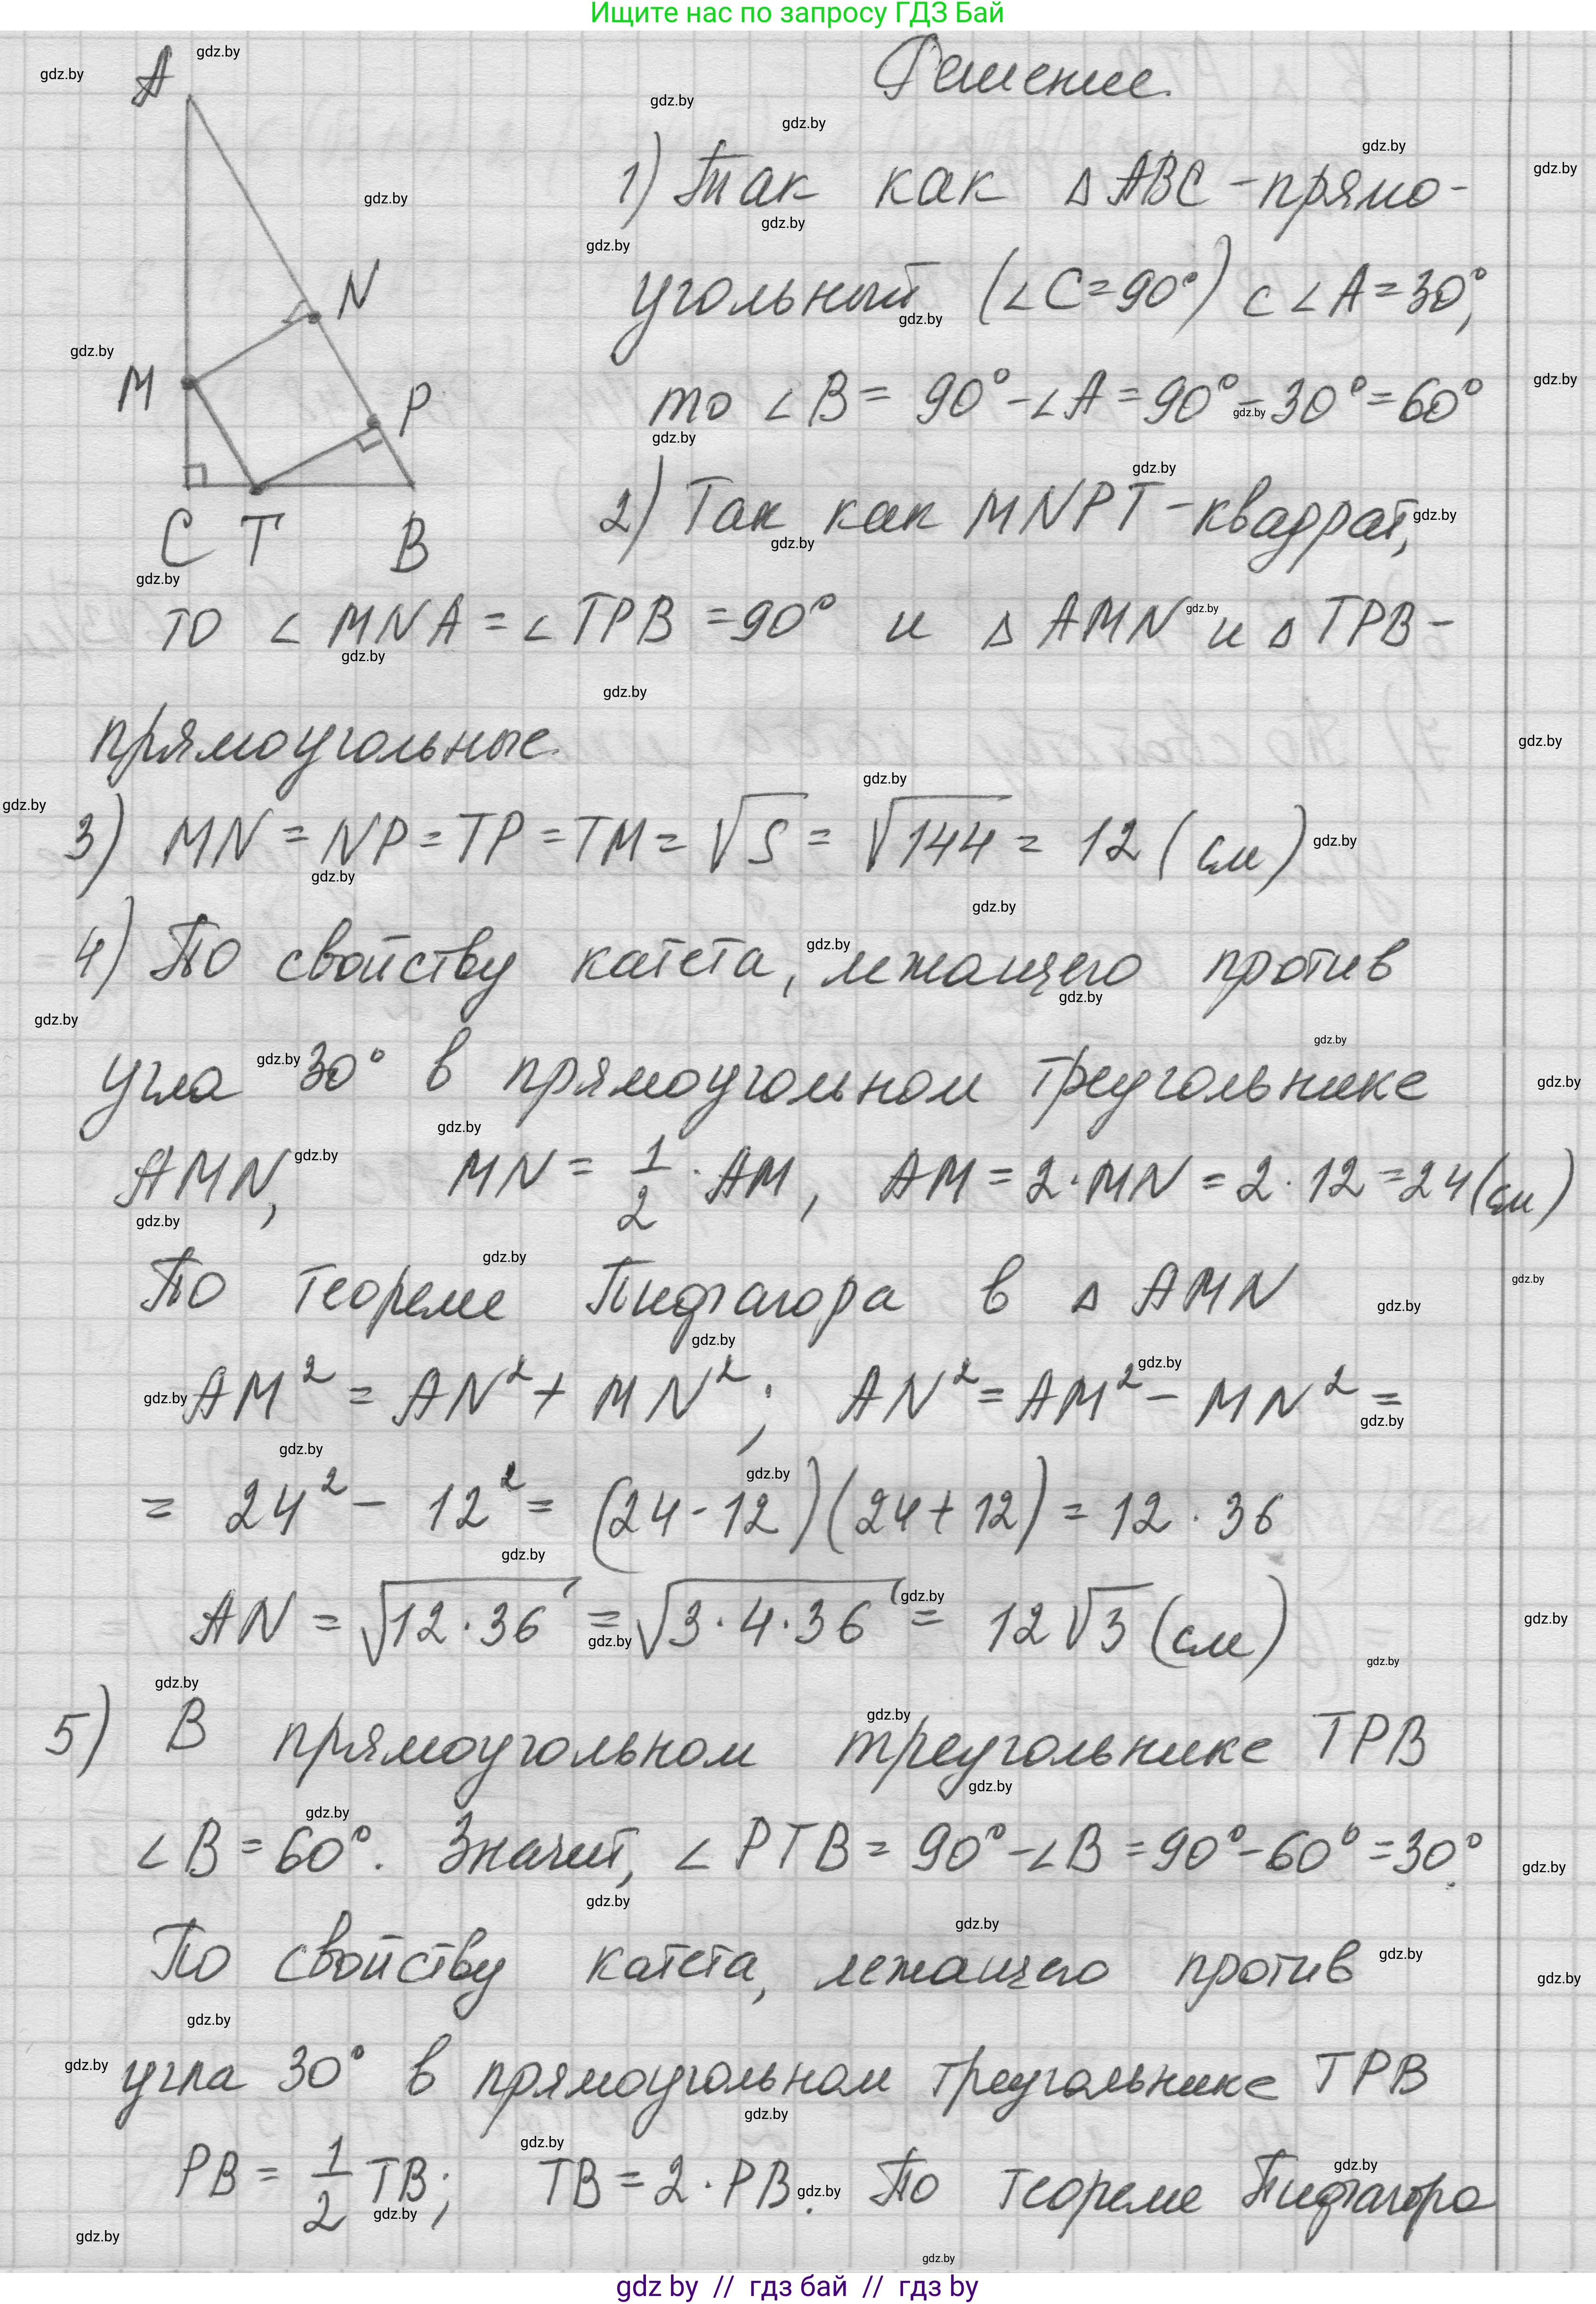 Ищите нас по запросу ГДЗ Бай
Решение.
A
N
M
P
C T B
1) Так как Δ ABC - прямо-
угольный (∠C=90°) с ∠A=30°,
то ∠B = 90°-∠A = 90°-30°=60°
2) Так как MNPT - квадрат,
то ∠ MNA = ∠ TPB = 90° и Δ AMN и Δ TPB -
прямоугольные.
3) MN = NP = TP = TM = √S = √144 = 12 (см)
4) По свойству катета, лежащего против
угла 30° в прямоугольном треугольнике
AMN, MN = 1/2 · AM, AM = 2·MN = 2·12 = 24(см)
По теореме Пифагора в Δ AMN
AM² = AN² + MN²; AN² = AM² - MN² =
= 24² - 12² = (24-12)(24+12) = 12 · 36
AN = √12·36 = √3·4·36 = 12√3 (см)
5) В прямоугольном треугольнике TPB
∠B = 60°. Значит, ∠ PTB = 90°-∠B = 90°-60° = 30°.
По свойству катета, лежащего против
угла 30° в прямоугольном треугольнике TPB
PB = 1/2 TB; TB = 2·PB. По теореме Пифагора
gdz by // гдз бай // гдз by